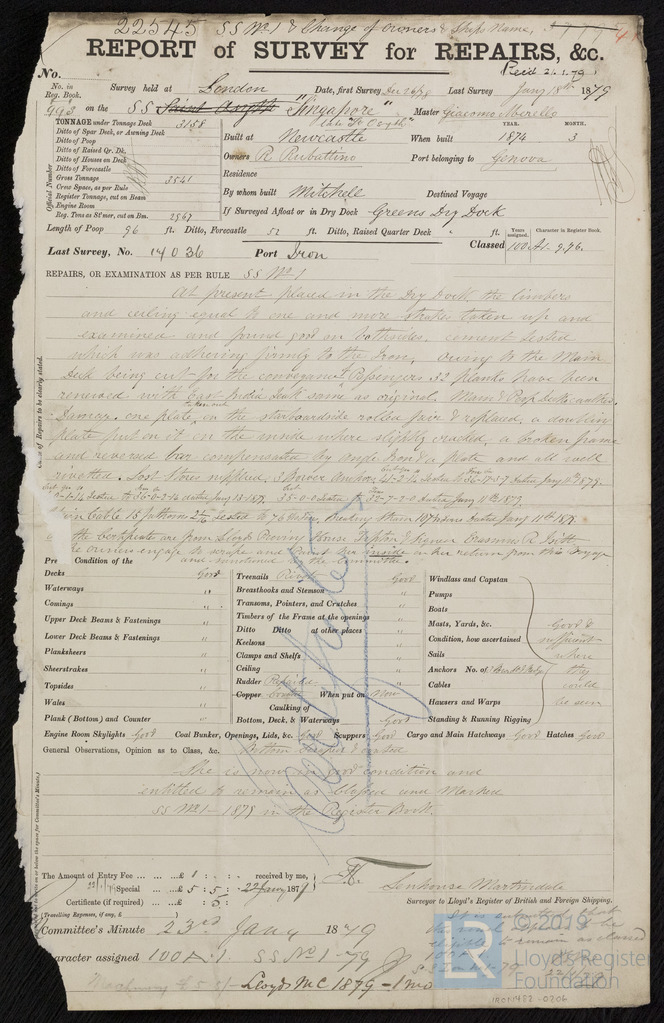 22545 SS No 1 & Change of Owners & Ships Name,
REPORT of SURVEY for REPAIRS, &c.
No. Rec'd 21.1.79
No. in Reg. Book. Survey held at London Date, first Survey Last Survey Jany 18th 1879
993 on the SS "Singapore" Master Giacomo
late
TONNAGE under Tonnage Deck 3158
Ditto of Spar Deck, or Awning Deck
Ditto of Poop
Ditto of Raised Qr. Dk.
Ditto of Houses on Deck
Ditto of Forecastle
Gross Tonnage 3541
Crew Space, as per Rule
Register Tonnage, cut on Beam
Engine Room
Reg. Tons as St'mer, cut on Bm. 2967
Official Number
Built at Newcastle When built YEAR. 1874 MONTH. 3
Owners R Rubattino Port belonging to Genova
Residence
By whom built Mitchell Destined Voyage
If Surveyed Afloat or in Dry Dock Greens Dry Dock
Length of Poop 96 ft. Ditto, Forecastle 52 ft. Ditto, Raised Quarter Deck ft.
Years assigned. Character in Register Book.
Last Survey, No. 14036 Port Iron Classed 100A1. 9.76.
REPAIRS, OR EXAMINATION AS PER RULE SS No 1
At present placed in the Dry Dock, the limbers
and ceiling equal to one and more strakes taken up and
examined and found good on both sides, cement tested
which was adhering firmly to the Iron, owing to the Main
Deck being cut for the conveyance of Passengers 32 planks have been
renewed with East India teak same as original. Main & Poop Decks caulked.
Damage. one plate on the starboard side rolled fair & replaced, a doubling
plate put on it on the inside where slightly cracked, a broken frame
and reversed bar compensated by angle Iron & a plate and all well
rivetted. Lost Stores supplied, 3 Bower Anchors 41-2-14 tested to dated Jany 11th 1879.
tested to 36-0-2-14 dated Jany 13 1879. 35-0-0 tested to 32-7-2-0 dated Jany 11th 1879.
Chain Cable 15 fathoms tested to 76 tons, Breaking Strain dated Jany 11th 1879.
the Certificate are from Lloyds Proving House Tipton & signed
the owners engage to scrape and paint her inside on her return from this Voyage
and sanctioned by the Committee.
Case of Repairs to be clearly stated.
Pre Condition of the
Decks Good
Waterways "
Comings "
Upper Deck Beams & Fastenings "
Lower Deck Beams & Fastenings "
Planksheers "
Sheerstrakes "
Topsides "
Wales "
Plank (Bottom) and Counter "
Treenails Good
Breasthooks and Stemson "
Transoms, Pointers, and Crutches "
Timbers of the Frame at the openings "
Ditto Ditto at other places "
Keelsons "
Clamps and Shelfs "
Ceiling "
Rudder Repaired
Copper When put on Now
Caulking of
Bottom, Deck, & Waterways Good
Windlass and Capstan
Pumps
Boats
Masts, Yards, &c.
Condition, how ascertained
Sails
Anchors No. of
Cables
Hausers and Warps
Standing & Running Rigging
Good &
sufficient
where
they
could
be seen
Engine Room Skylights Good Coal Bunker, Openings, Lids, &c. Good Scuppers Good Cargo and Main Hatchways Good Hatches Good
General Observations, Opinion as to Class, &c. Bottom scraped & coated
She is now in good condition and
entitled to remain as classed and Marked
SS No 1 - 1879 in the Register Book.
The Amount of Entry Fee ... ... ...£ 1 : : received by me,
Special ... £ 5 : 5 : 22 Jany 1879
Certificate (if required) ... £ :
(Travelling Expenses, if any, £
Senhouse Martindale
Surveyor to Lloyd's Register of British and Foreign Shipping.
Committee's Minute 23rd Jany 1879
Character assigned 100 A.1 SS No 1 - 79
Machinery £5.5/- Lloyds MC 1879 - 1 mo
© 2019
LR
Lloyd's Register
Foundation
IRON1452-0206